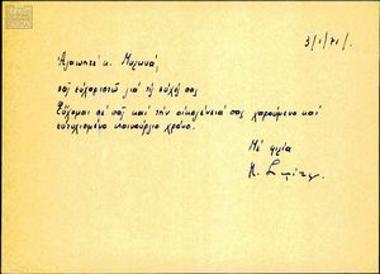 3/1/71/.
Ἀγαπητέ κ. Μυλωνά,
σᾶς εὐχαριστῶ γιά τίς εὐχές σας
Εὔχομαι σέ σᾶς καί τήν οἰκογένειά σας χαρούμενο καί
εὐτυχισμένο καινούργιο χρόνο.
Μέ φιλία
Κ.